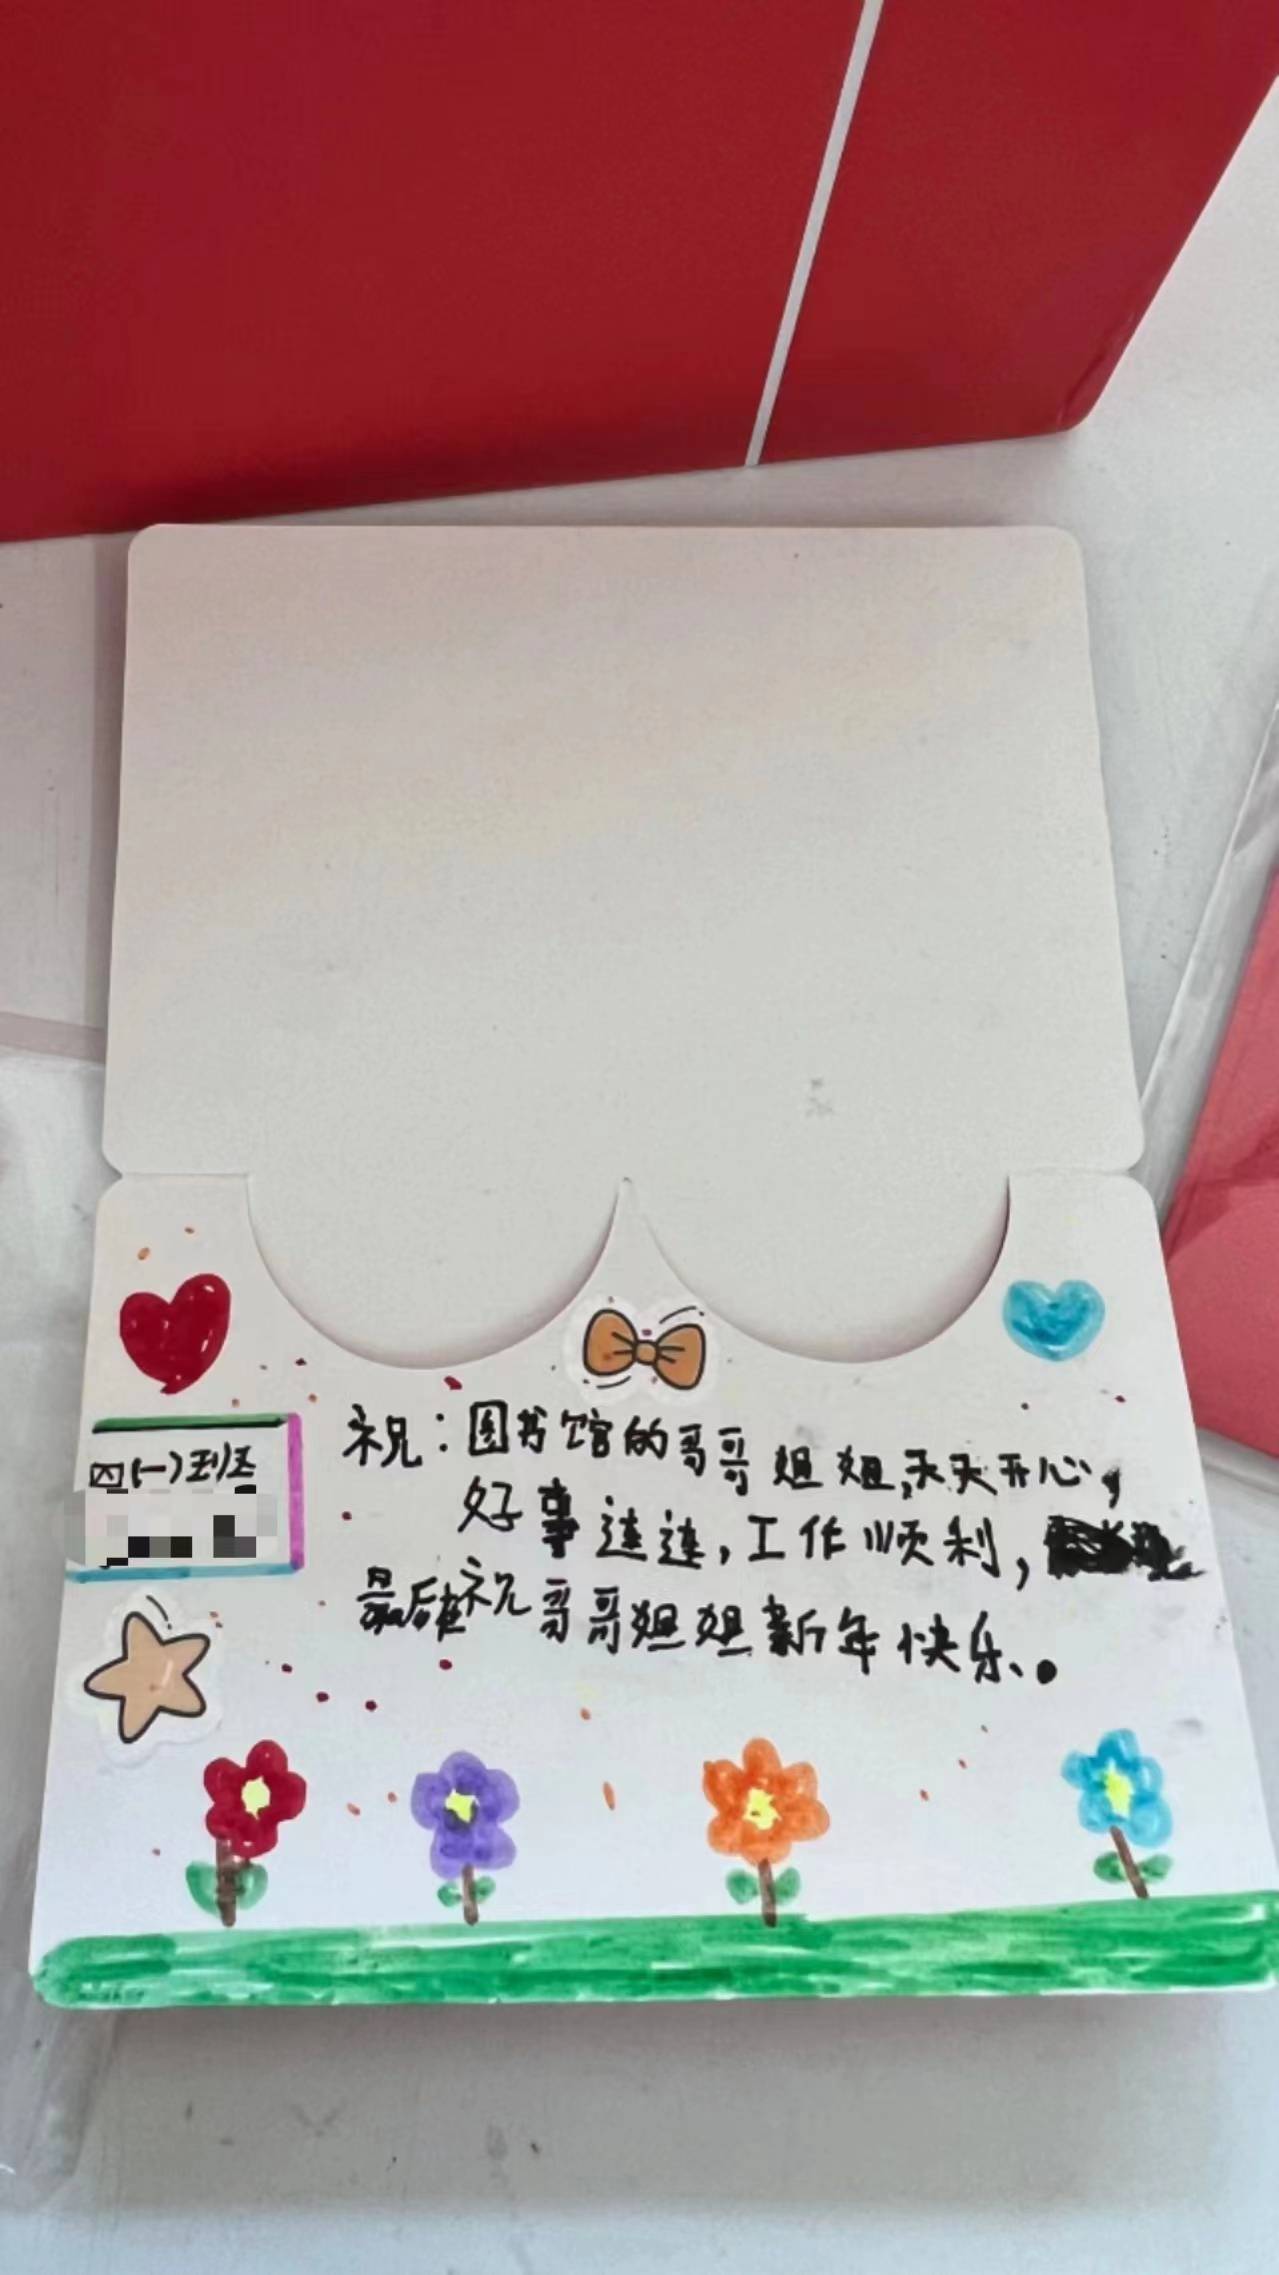 祝：图书馆的哥哥姐姐，天天开心，
好事连连，工作顺利，
最后祝哥哥姐姐新年快乐。
四(一)班